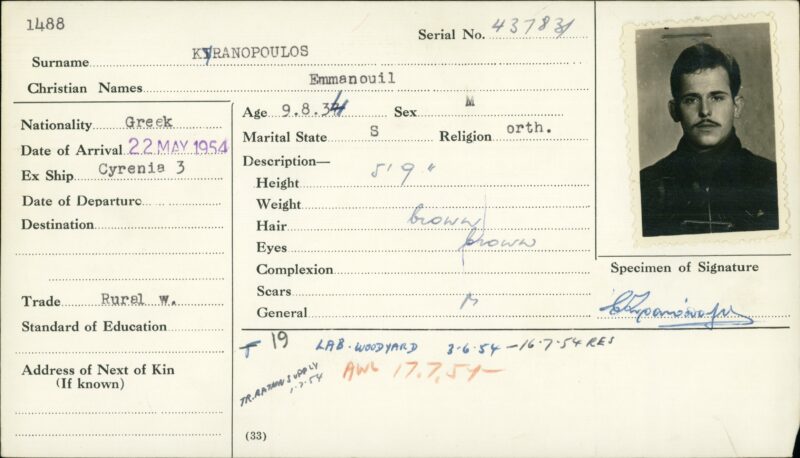 1488
Serial No. 43783
Surname KYRANOPOULOS
Christian Names Emmanouil
Nationality Greek
Date of Arrival 22 MAY 1954
Ex Ship Cyrenia 3
Date of Departure
Destination
Trade Rural w.
Standard of Education
Address of Next of Kin
(If known)
Age 9.8.34 Sex M
Marital State S Religion orth.
Description—
Height 5'9"
Weight
Hair brown
Eyes brown
Complexion
Scars
General M
Specimen of Signature
T 19 LAB. WOODYARD 3-6-54 - 16-7-54 RES
TR. RATION SUPPLY
1-7-54
AWL 17.7.54-
(33)